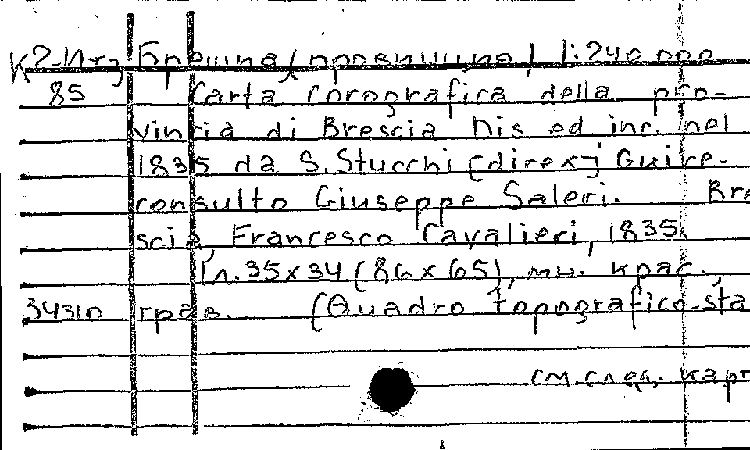 К2-Ит Брешиа (провинция) 1:240 000
85 Carta corografica della pro-
vincia di Brescia Dis ed inc. nel
1835 da S. Stucchi [direx-] Guire-
consulto Giuseppe Saleri. Bre
scia, Francesco Cavalieri, 1835.
1 л. 35 x 34 (86 x 65), мн. крас.,
34310 грав. (Quadro topografico-sta
см. след. карт